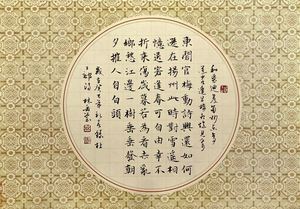 和裴迪登蜀州東亭
送客逢早梅相憶見寄
東閣官梅動詩興還如何
遜在揚州此時對雪遥相
憶送客逢春可自由幸不
折來傷歲暮若為看去亂
鄉愁江邊一樹垂垂發朝
夕摧人自白頭